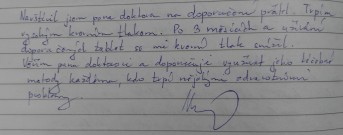 Navštívil jsem pana doktora na doporučení přátel. Trpím
vysokým krevním tlakem. Po 3 měsících a užívání
doporučených tablet se mi krevní tlak snížil.
Věřím panu doktorovi a doporučuji využívat jeho léčebné
metody každému, kdo trpí nějakými zdravotními
problémy